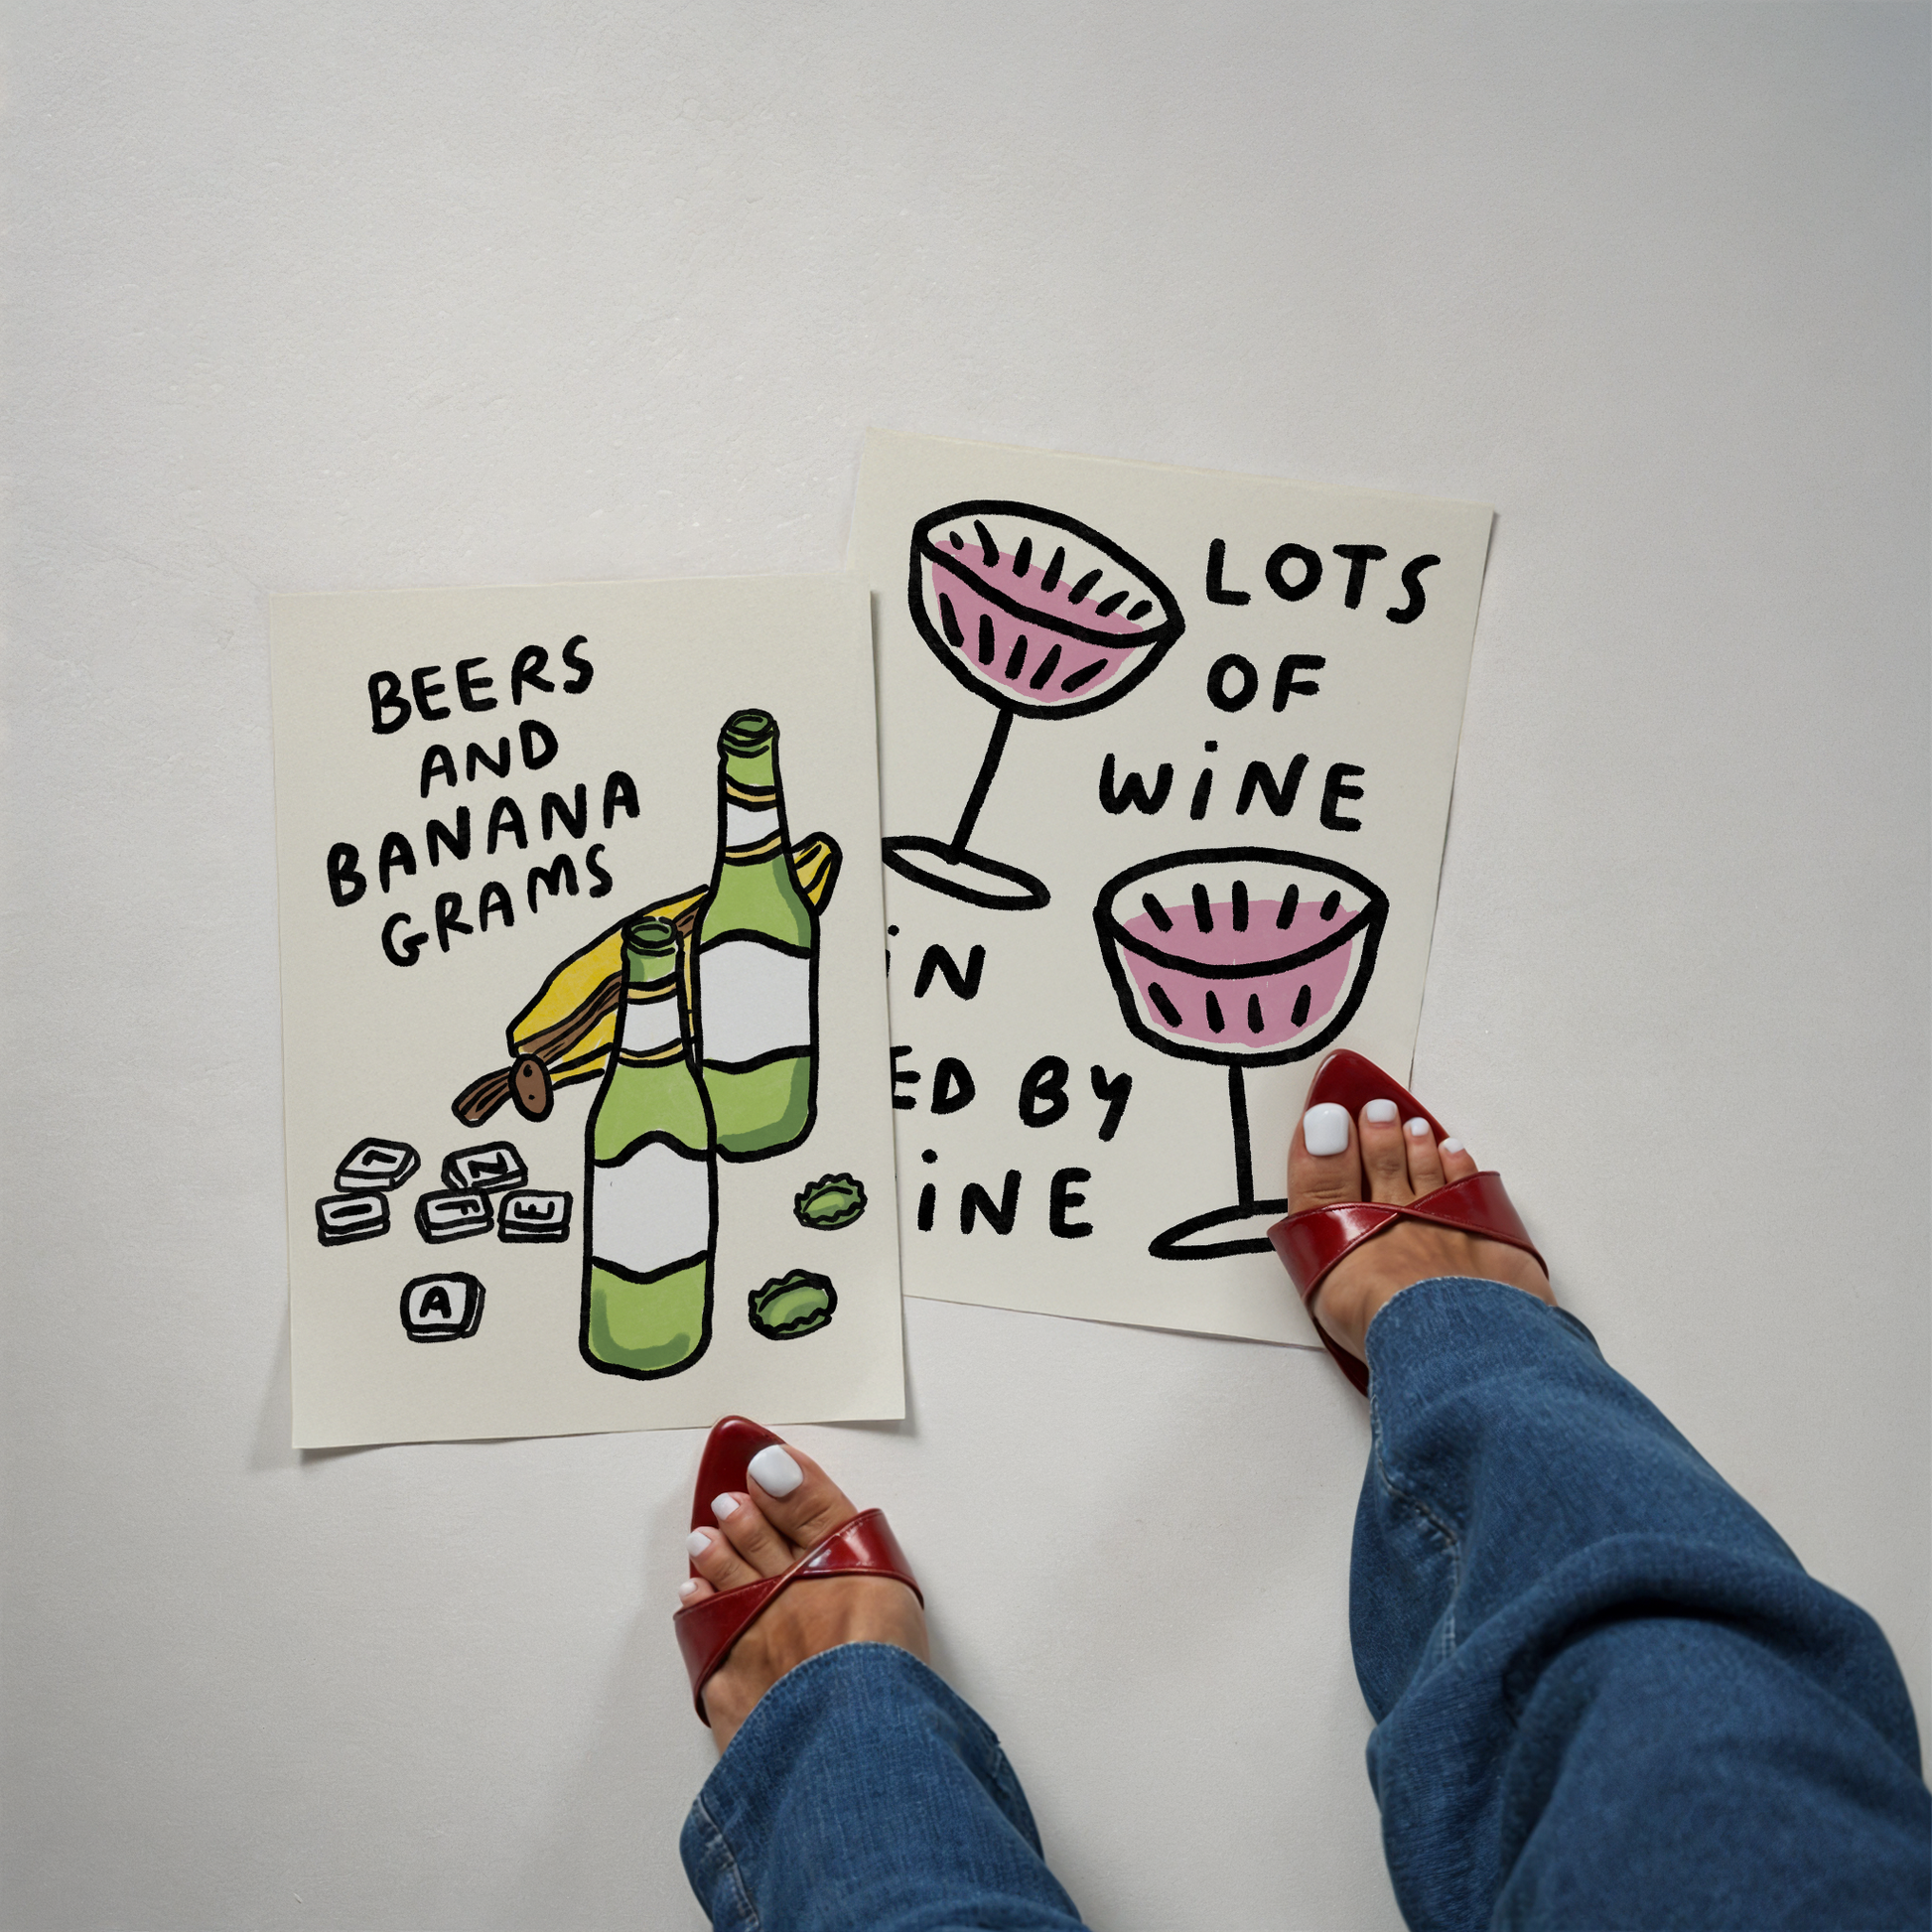 BEERS
AND
BANANA
GRAMS
N
F
E
A
LOTS
OF
WiNE
iN
ED BY
iNE